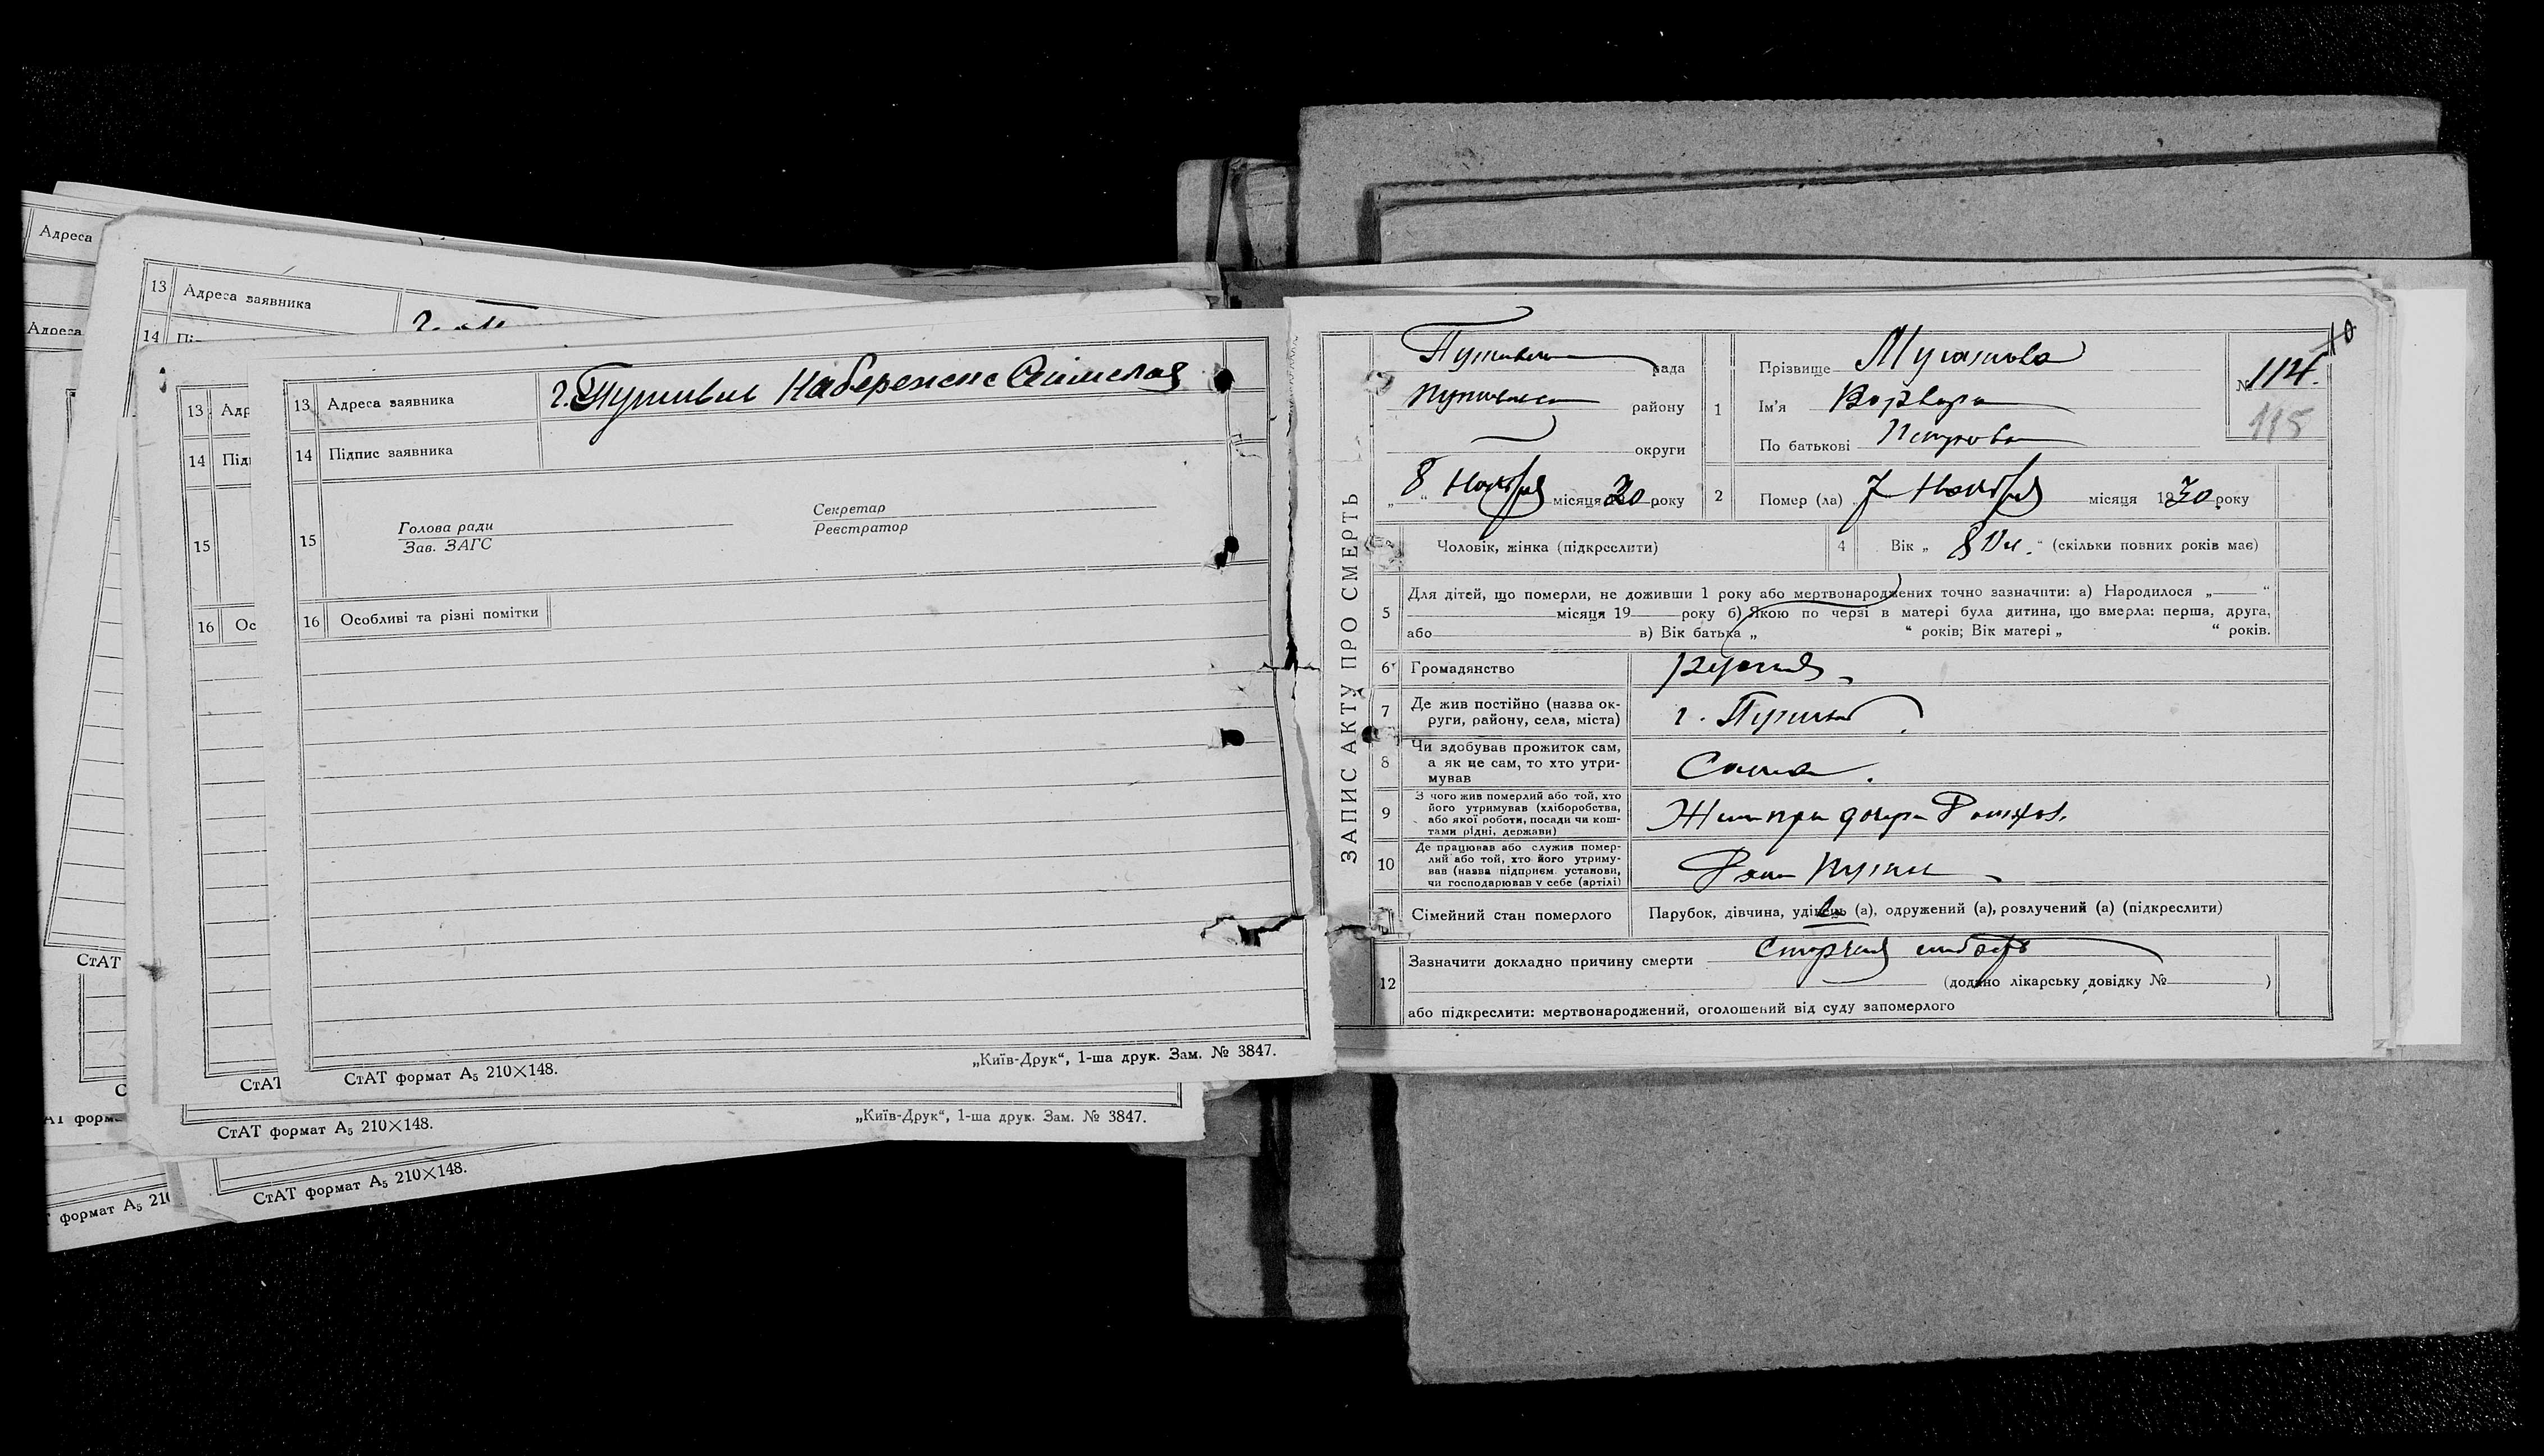 Адреса
Адреса
13 Адреса заявника
14
13
14
15
16 Ос
13 Адреса заявника г. Путивль
14 Підпис заявника
15 Голова ради
Зав. ЗАГС
Секретар
Реєстратор
16 Особливі та різні помітки
СтАТ формат А₅ 210×148.
„Київ-Друк“, 1-ша друк. Зам. № 3847.
СтАТ
СтАТ
СтАТ формат А₅ 210×148.
„Київ-Друк“, 1-ша друк. Зам. № 3847.
СтАТ формат А₅ 210×148.
формат А₅ 210
ЗАПИС АКТУ ПРО СМЕРТЬ
рада
району
округи
„8“ Ноября місяця 30 року
1 Прізвище
Ім'я Варвара
По батькові Петровна
№ 114.
115
10
2 Помер (ла) 7 Ноября місяця 1930 року
Чоловік, жінка (підкреслити)
4 Вік „ 80 л. “ (скільки повних років має)
5 Для дітей, що померли, не доживши 1 року або мертвонароджених точно зазначити: а) Народилося „ “
місяця 19 року б) Якою по черзі в матері була дитина, що вмерла: перша, друга,
або в) Вік батька „ “ років; Вік матері „ “ років.
6 Громадянство русская
7 Де жив постійно (назва округи, району, села, міста) г. Путивль
8 Чи здобував прожиток сам,
а як не сам, то хто утри-
мував Сама.
9 З чого жив померлий або той, хто
його утримував (хліборобства,
або якої роботи, посади чи кош-
тами рідні, держави) при дочери
10 Де працював або служив помер-
лий або той, хто його утриму-
вав (назва підприєм. установи,
чи господарював у себе (артілі)
Сімейний стан померлого Парубок, дівчина, удівець (а), одружений (а), розлучений (а) (підкреслити)
12 Зазначити докладно причину смерти Старческая слабость
(додано лікарську довідку № )
або підкреслити: мертвонароджений, оголошений від суду запомерлого